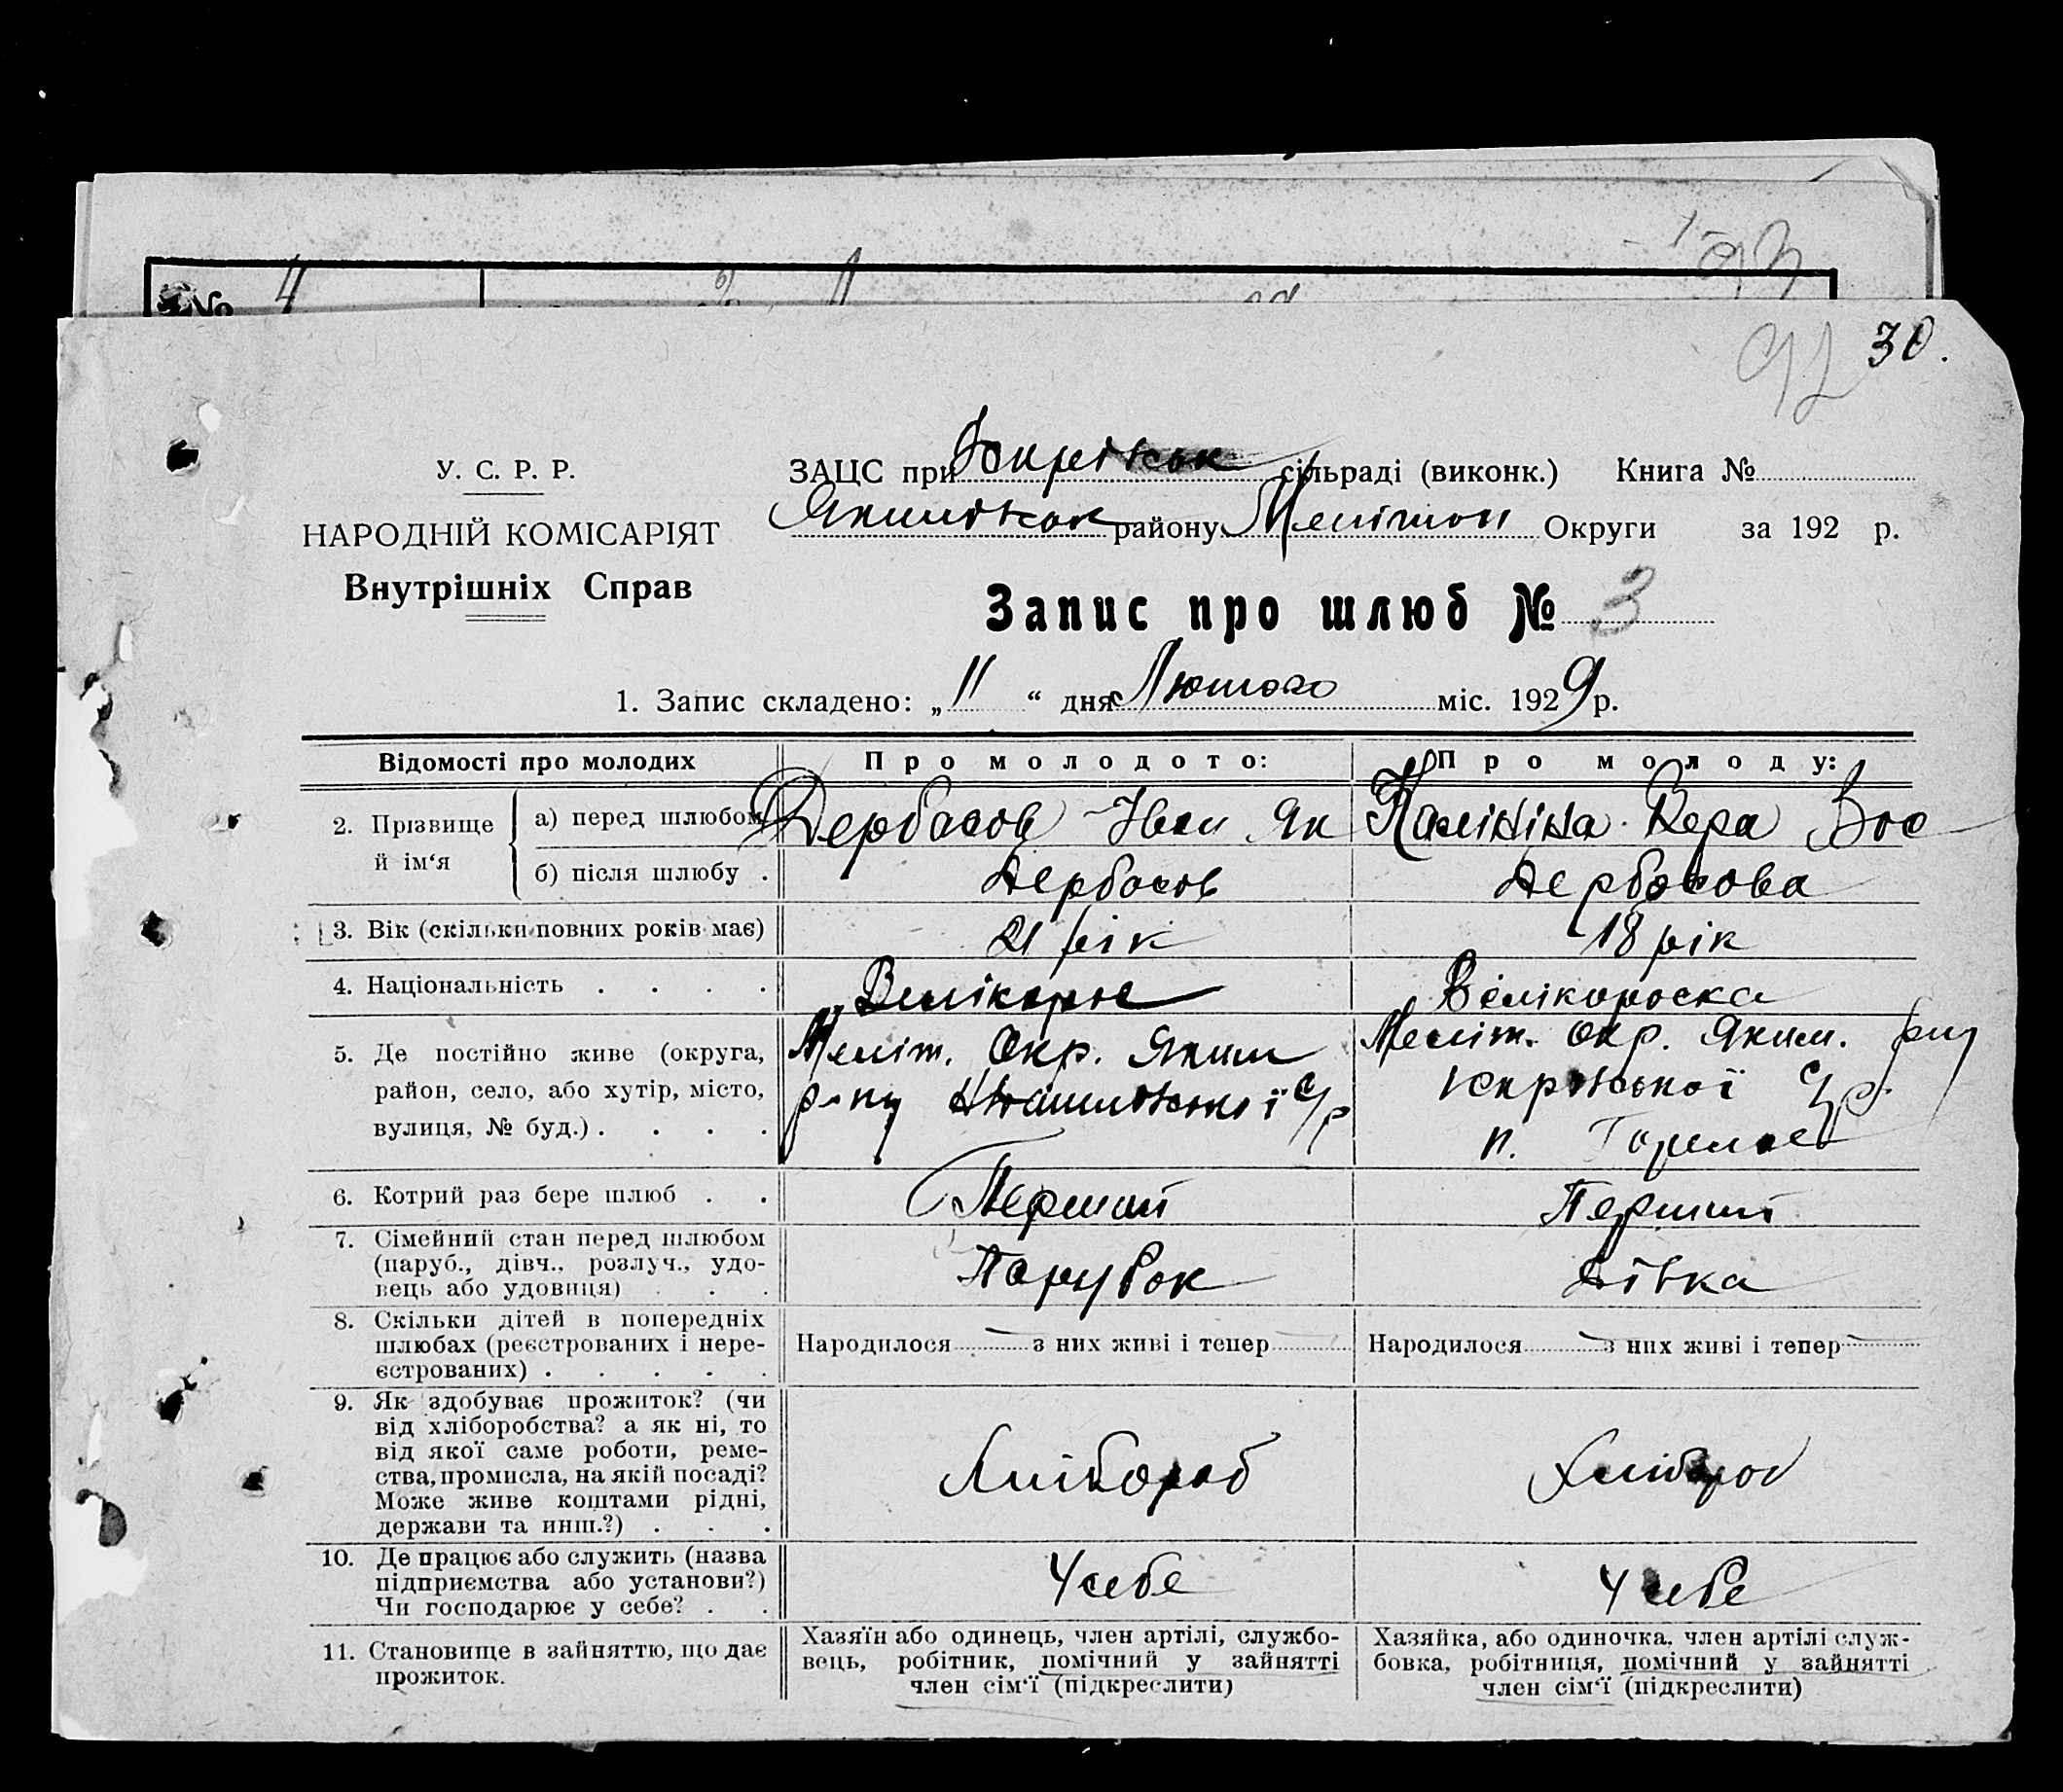 № 4
93
92 30.
У. С. Р. Р.
НАРОДНІЙ КОМІСАРІЯТ
Внутрішніх Справ
ЗАЦС при сільраді (виконк.) Книга №
Якимівськ району Меліт Округи за 192 р.
Запис про шлюб № 3
1. Запис складено: „ 11 “ дня Лютого міс. 1929 р.
Відомості про молодих Про молодого: Про молоду:
2. Прізвище й ім‘я
а) перед шлюбом Дербасов Іван Як Калініна Вера Вас
б) після шлюбу . Дербасов Дербасова
3. Вік (скільки повних років має) 21 рік 18 рік
4. Національність . . . . Велікорос Велікороска
5. Де постійно живе (округа, Меліт. Окр. Яким Меліт. Окр. Яким. р-ну
район, село, або хутір, місто, р-ну С/р С/р.
вулиця, № буд.) . . . . п.
6. Котрий раз бере шлюб . . Перший Перший
7. Сімейний стан перед шлюбом
(паруб., дівч., розлуч., удо-
вець або удовиця) . . . Парубок Дівка
8. Скільки дітей в попередніх
шлюбах (реєстрованих і нере- Народилося — з них живі і тепер Народилося — з них живі і тепер —
єстрованих) . . . . .
9. Як здобуває прожиток? (чи
від хліборобства? а як ні, то
від якої саме роботи, реме-
ства, промисла, на якій посаді? Хлібороб Хлібороб
Може живе коштами рідні,
держави та инш.?) . . .
10. Де працює або служить (назва
підприємства або установи?) У себе У себе
Чи господарює у себе? . .
11. Становище в зайняттю, що дає
прожиток.
Хазяїн або одинець, член артілі, службо-
вець, робітник, помічний у зайнятті
член сім‘ї (підкреслити)
Хазяйка, або одиночка, член артілі служ-
бовка, робітниця, помічний у зайнятті
член сім‘ї (підкреслити)